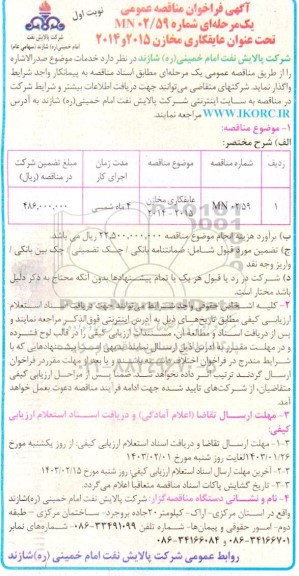 آگهی فراخوان مناقصه عمومی
نوبت اول
یک‌مرحله‌ای شماره MN ۰۲/۵۹
تحت عنوان عایقکاری مخازن ۲۰۱۵ و ۲۰۱۴
شرکت پالایش نفت
امام خمینی(ره) شازند (سهامی عام)
شرکت پالایش نفت امام خمینی(ره) شازند در نظر دارد خدمات موضوع صدرالاشاره
را از طریق مناقصه عمومی یک مرحله‌ای مطابق اسناد مناقصه به پیمانکار واجد شرایط
واگذار نماید. شرکتهای متقاضی می‌توانند جهت دریافت اطلاعات بیشتر و شرایط شرکت
در مناقصه به سایت اینترنتی شرکت پالایش نفت امام خمینی (ره) شازند به آدرس
WWW.IKORC.IR مراجعه نمایند.
۱- موضوع مناقصه:
الف) شرح مختصر:
ردیف شماره مناقصه موضوع مناقصه مدت زمان اجرای کار مبلغ تضمین شرکت در مناقصه (ریال)
۱ MN ۰۲/۵۹ عایقکاری مخازن ۲۰۱۵ - ۲۰۱۴ ۴ ماه شمسی ۴۸۶,۰۰۰,۰۰۰
ب) برآورد هزینه انجام موضوع مناقصه ۲۲,۵۰۰,۰۰۰,۰۰۰ ریال می باشد.
ج) تضمین مورد قبول شامل: ضمانتنامه بانکی / چک تضمینی / چک بین بانکی /
واریز وجه نقد.
د) شرکت در رد یا قبول هر یک یا تمام پیشنهادها بدون آنکه محتاج به ذکر دلیل
باشد مختار است.
۲- کلیه اشخاص حقوقی واجد شرایط می‌توانند جهت دریافت اسناد استعلام
ارزیابی کیفی مطابق تاریخ‌های ذیل به آدرس اینترنتی فوق‌الذکر مراجعه نمایند و
پس از دریافت اسناد و مطالعه آن، مستندات ارزیابی کیفی را در قالب لوح فشرده
و در مهلت مقرر به آدرس ذیل ارسال نمایند.
۳- مهلت ارسال تقاضا (اعلام آمادگی) و دریافت اسناد استعلام ارزیابی
کیفی:
۳-۱- مهلت ارسال تقاضا و دریافت اسناد استعلام ارزیابی کیفی: از روز یکشنبه مورخ
۱۴۰۳/۰۱/۲۶ لغایت روز شنبه مورخ ۱۴۰۳/۰۲/۰۱
۳-۲- آخرین مهلت ارسال اسناد استعلام ارزیابی کیفی: روز شنبه مورخ ۱۴۰۳/۰۲/۱۵
۳-۳- تاریخ گشایش پاکات اسناد مناقصه متعاقبا اعلام می‌گردد.
۴- نام و نشانی دستگاه مناقصه‌گزار: شرکت پالایش نفت امام خمینی (ره) شازند
واقع در استان مرکزی- اراک- کیلومتر ۲۰ جاده بروجرد- ساختمان مرکزی – طبقه
دوم- امور حقوقی و پیمان‌ها- شماره تلفن ۳۳۴۹۱۰۹۹-۰۸۶ شماره‌های نمابر
۳۴۱۶۶۷۰۱-۰۸۶ و ۳۴۱۶۶۰۸۴-۰۸۶
روابط عمومی شرکت پالایش نفت امام خمینی (ره) شازند